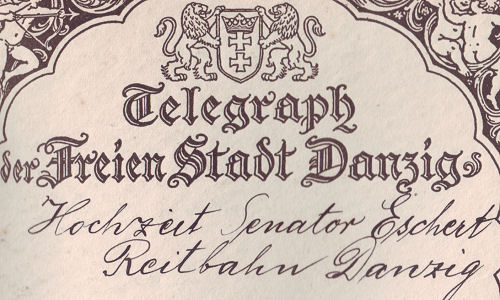 Telegraph
der Freien Stadt Danzig
Hochzeit Senator Eschert
Reitbahn Danzig